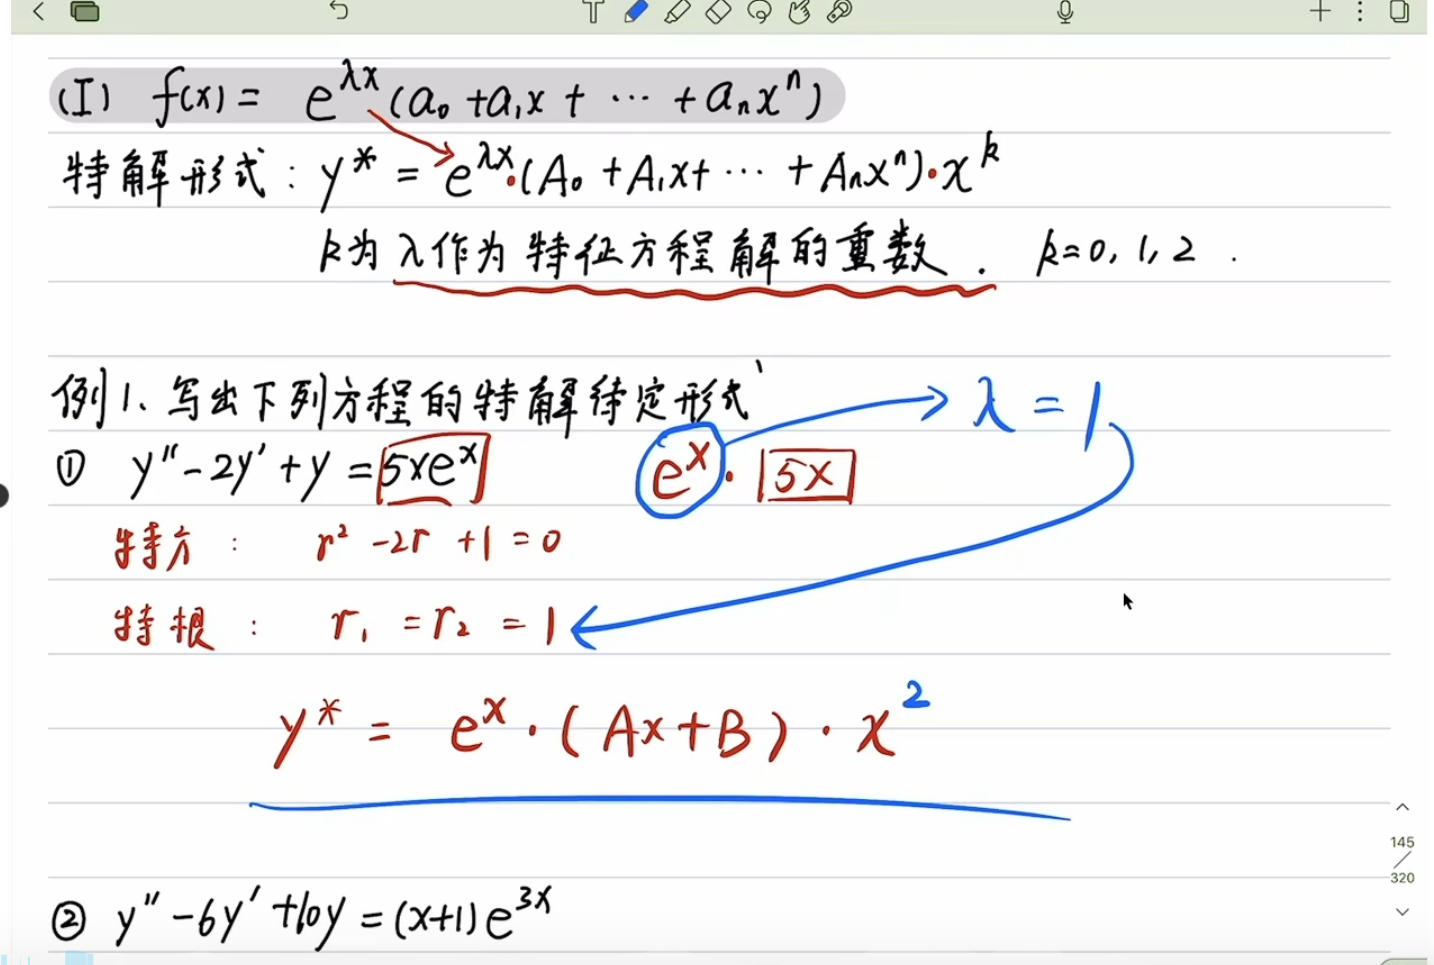 (I) f(x) = e^{λx}(a₀ + a₁x + ⋯ + aₙxⁿ)
特解形式: y* = e^{λx}·(A₀ + A₁x + ⋯ + Aₙxⁿ)·x^k
k为λ作为特征方程解的重数. k=0, 1, 2.
例1、写出下列方程的特解待定形式 λ = 1
① y'' - 2y' + y = 5xe^x e^x · 5x
特方: r² - 2r + 1 = 0
特根: r₁ = r₂ = 1
y* = e^x · (Ax+B) · x²
145
320
② y'' - 6y' + 10y = (x+1)e^{3x}